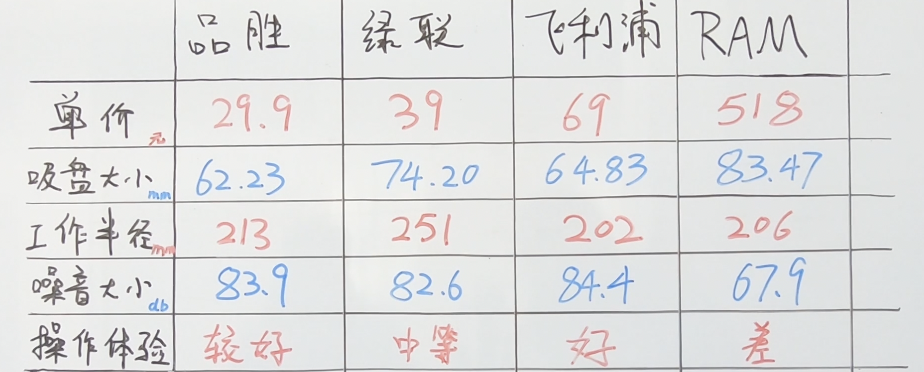 品胜 绿联 飞利浦 RAM
单价元 29.9 39 69 518
吸盘大小mm 62.23 74.20 64.83 83.47
工作半径mm 213 251 202 206
噪音大小db 83.9 82.6 84.4 67.9
操作体验 较好 中等 好 差